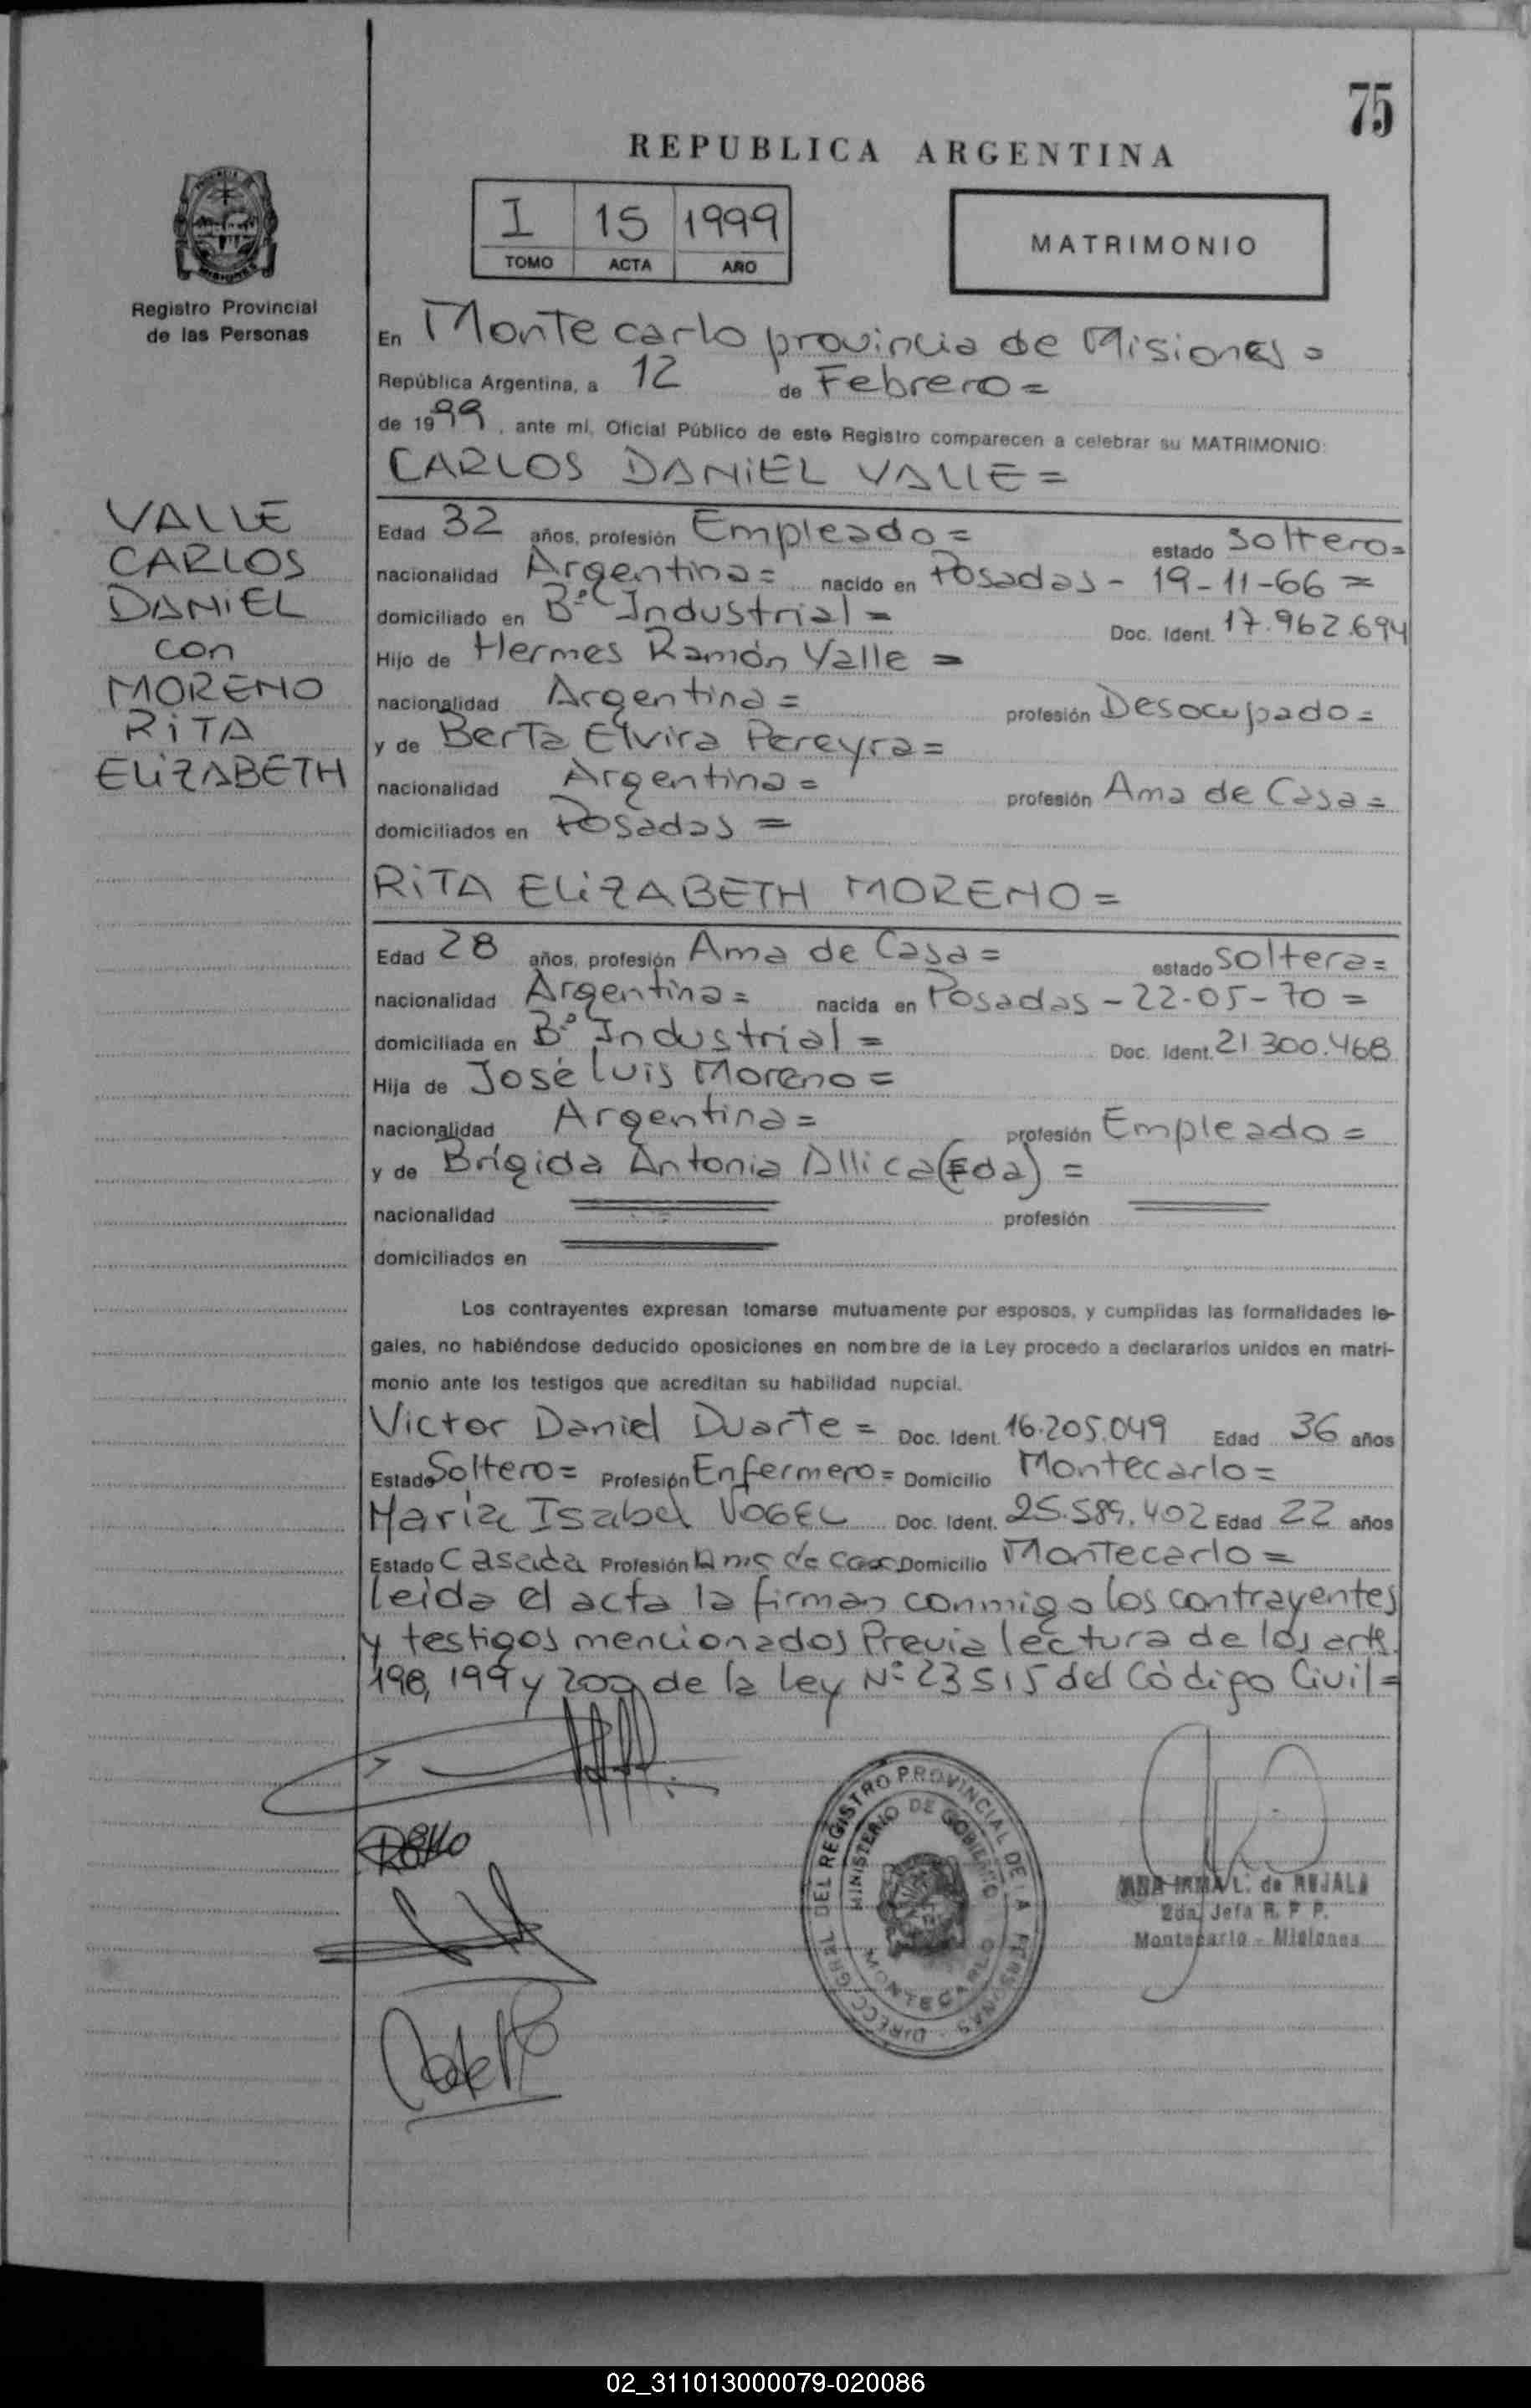 75
REPUBLICA ARGENTINA
I 15 1999
TOMO ACTA AÑO
MATRIMONIO
Registro Provincial
de las Personas
En Montecarlo provincia de Misiones =
República Argentina, a 12 de Febrero =
de 1999, ante mí, Oficial Público de este Registro comparecen a celebrar su MATRIMONIO:
CARLOS DANIEL VALLE =
VALLE
CARLOS
DANIEL
con
MORENO
RITA
ELIZABETH
Edad 32 años, profesión Empleado = estado soltero =
nacionalidad Argentina = nacido en Posadas - 19-11-66 =
domiciliado en Bº Industrial = Doc. Ident. 17.962.694
Hijo de Hermes Ramón Valle =
nacionalidad Argentina = profesión Desocupado =
y de Berta Elvira Pereyra =
nacionalidad Argentina = profesión Ama de Casa =
domiciliados en Posadas =
RITA ELIZABETH MORENO =
Edad 28 años, profesión Ama de Casa = estado soltera =
nacionalidad Argentina = nacida en Posadas - 22-05-70 =
domiciliada en Bº Industrial = Doc. Ident. 21.300.468
Hija de José Luis Moreno =
nacionalidad Argentina = profesión Empleado =
y de Brígida Antonia Allica (Fda) =
nacionalidad profesión
domiciliados en
Los contrayentes expresan tomarse mutuamente por esposos, y cumplidas las formalidades le-
gales, no habiéndose deducido oposiciones en nombre de la Ley procedo a declararlos unidos en matri-
monio ante los testigos que acreditan su habilidad nupcial.
Victor Daniel Duarte = Doc. Ident. 16.205.049 Edad 36 años
Estado Soltero = Profesión Enfermero = Domicilio Montecarlo =
Maria Isabel VOGEL Doc. Ident. 25.589.402 Edad 22 años
Estado Casada Profesión Ama de casa Domicilio Montecarlo =
leida el acta la firman conmigo los contrayentes
y testigos mencionados Previa lectura de los arts.
198, 199 y 200 de la Ley Nº 23515 del Código Civil =
DIRECC. GRAL. DEL REGISTRO PROVINCIAL DE LA PERSONAS
MINISTERIO DE GOBIERNO
MONTECARLO
ANA IRMA L. de RUJALA
2da. Jefa R. P. P.
Montecarlo - Misiones
02_311013000079-020086